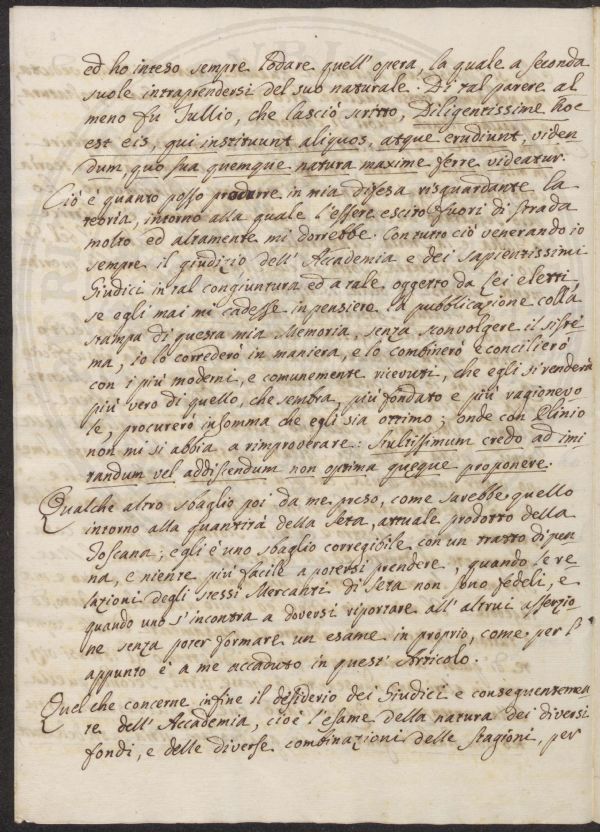 ed ho inteso sempre lodare quell' opera, la quale a seconda
suole intraprendersi del suo naturale. Di tal parere al
meno fu Tullio, che lasciò scritto, Diligentissime hoc
est eis, qui instituunt aliquos, atque erudiunt, viden
dum, quo sua quemque natura maxime ferre videatur.
Ciò è quanto posso produrre in mia difesa risguardante la
teoria, intorno alla quale l'essere escito fuori di strada
molto ed altamente mi dorrebbe. Con tutto ciò venerando io
sempre il giudizio dell' Accademia e dei sapientissimi
Giudici in tal congiuntura ed a tale oggetto da Lei eletti,
se egli mai mi cadesse in pensiere la pubblicazione colla
stampa di questa mia Memoria, senza sconvolgere il siste
ma, io lo correderò in maniera, e lo combinerò e concilierò
con i più moderni, e comunemente ricevuti, che egli si renderà
più vero di quello, che sembra, più fondato e più ragionevo
le, procurerò insomma che egli sia ottimo; onde con Plinio
non mi si abbia a rimproverare: Stultissimum credo ad imi
tandum vel addiscendum non optima queque proponere.
Qualche altro sbaglio poi da me preso, come sarebbe quello
intorno alla quantità della Seta, attuale prodotto della
Toscana; egli è uno sbaglio corregibile con un tratto di pen
na, e niente più facile a potersi prendere, quando le re
lazioni degli stessi Mercanti di Seta non sono fedeli, e
quando uno s'incontra a doversi riportare all' altrui asserzio
ne senza poter formare un esame in proprio, come per l'
appunto è a me accaduto in quest' Articolo.
Quel che concerne infine il desiderio dei Giudici e conseguenteme
te dell' Accademia, cioè l'esame della natura dei diversi
fondi, e delle diverse combinazioni delle Stagioni, per